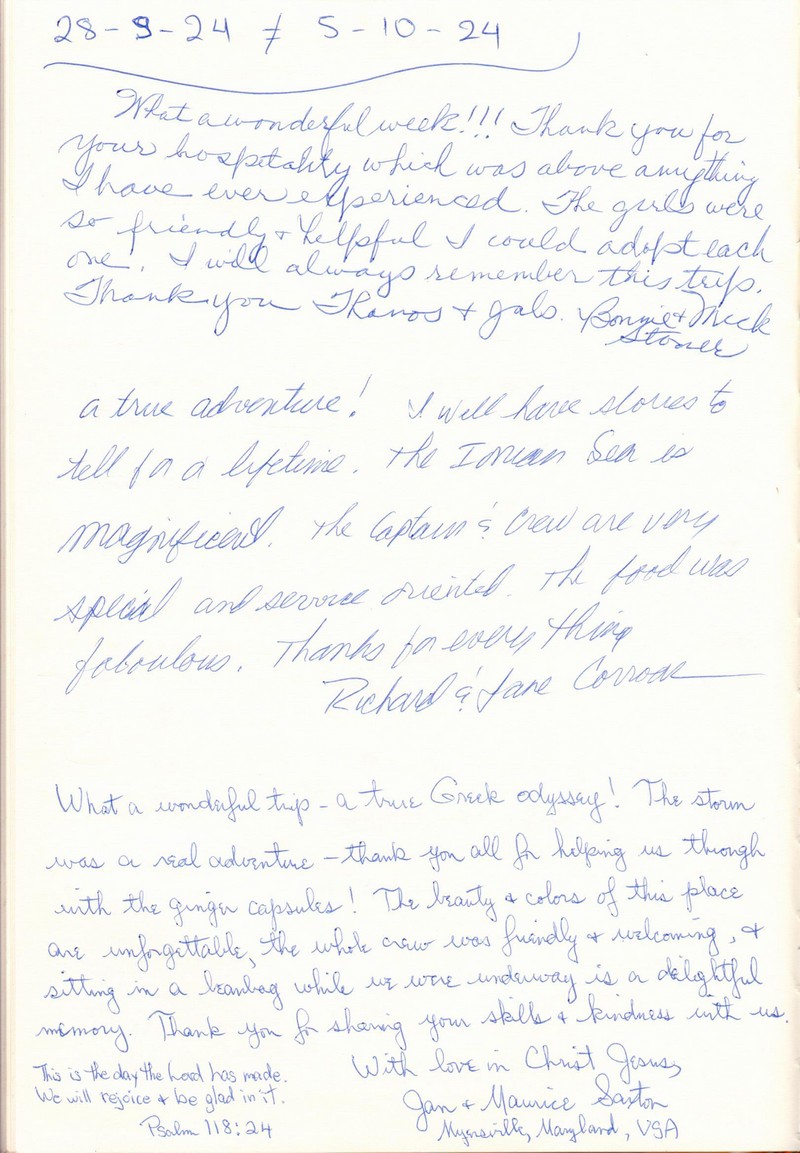 28-9-24 / 5-10-24
What a wonderful week!!! Thank you for
your hospitality which was above anything
I have ever experienced. The girls were
so friendly + helpful I could adopt each
one. I will always remember this trip.
Thank you Thanos + gals. Bonnie + Mick
Stoner
a true adventure! I will have stories to
tell for a lifetime. The Ionian Sea is
magnificent. The Captain & Crew are very
special and service oriented. The food was
faboulous. Thanks for every thing
Richard & Jane
What a wonderful trip - a true Greek odyssey! The storm
was a real adventure - thank you all for helping us through
with the ginger capsules! The beauty & colors of this place
are unforgettable, the whole crew was friendly & welcoming, &
sitting in a beanbag while we were underway is a delightful
memory. Thank you for sharing your skills & kindness with us.
With love in Christ Jesus,
Jan & Maurice Saxton
Myersville, Maryland, USA
This is the day the Lord has made.
We will rejoice & be glad in it.
Psalm 118:24